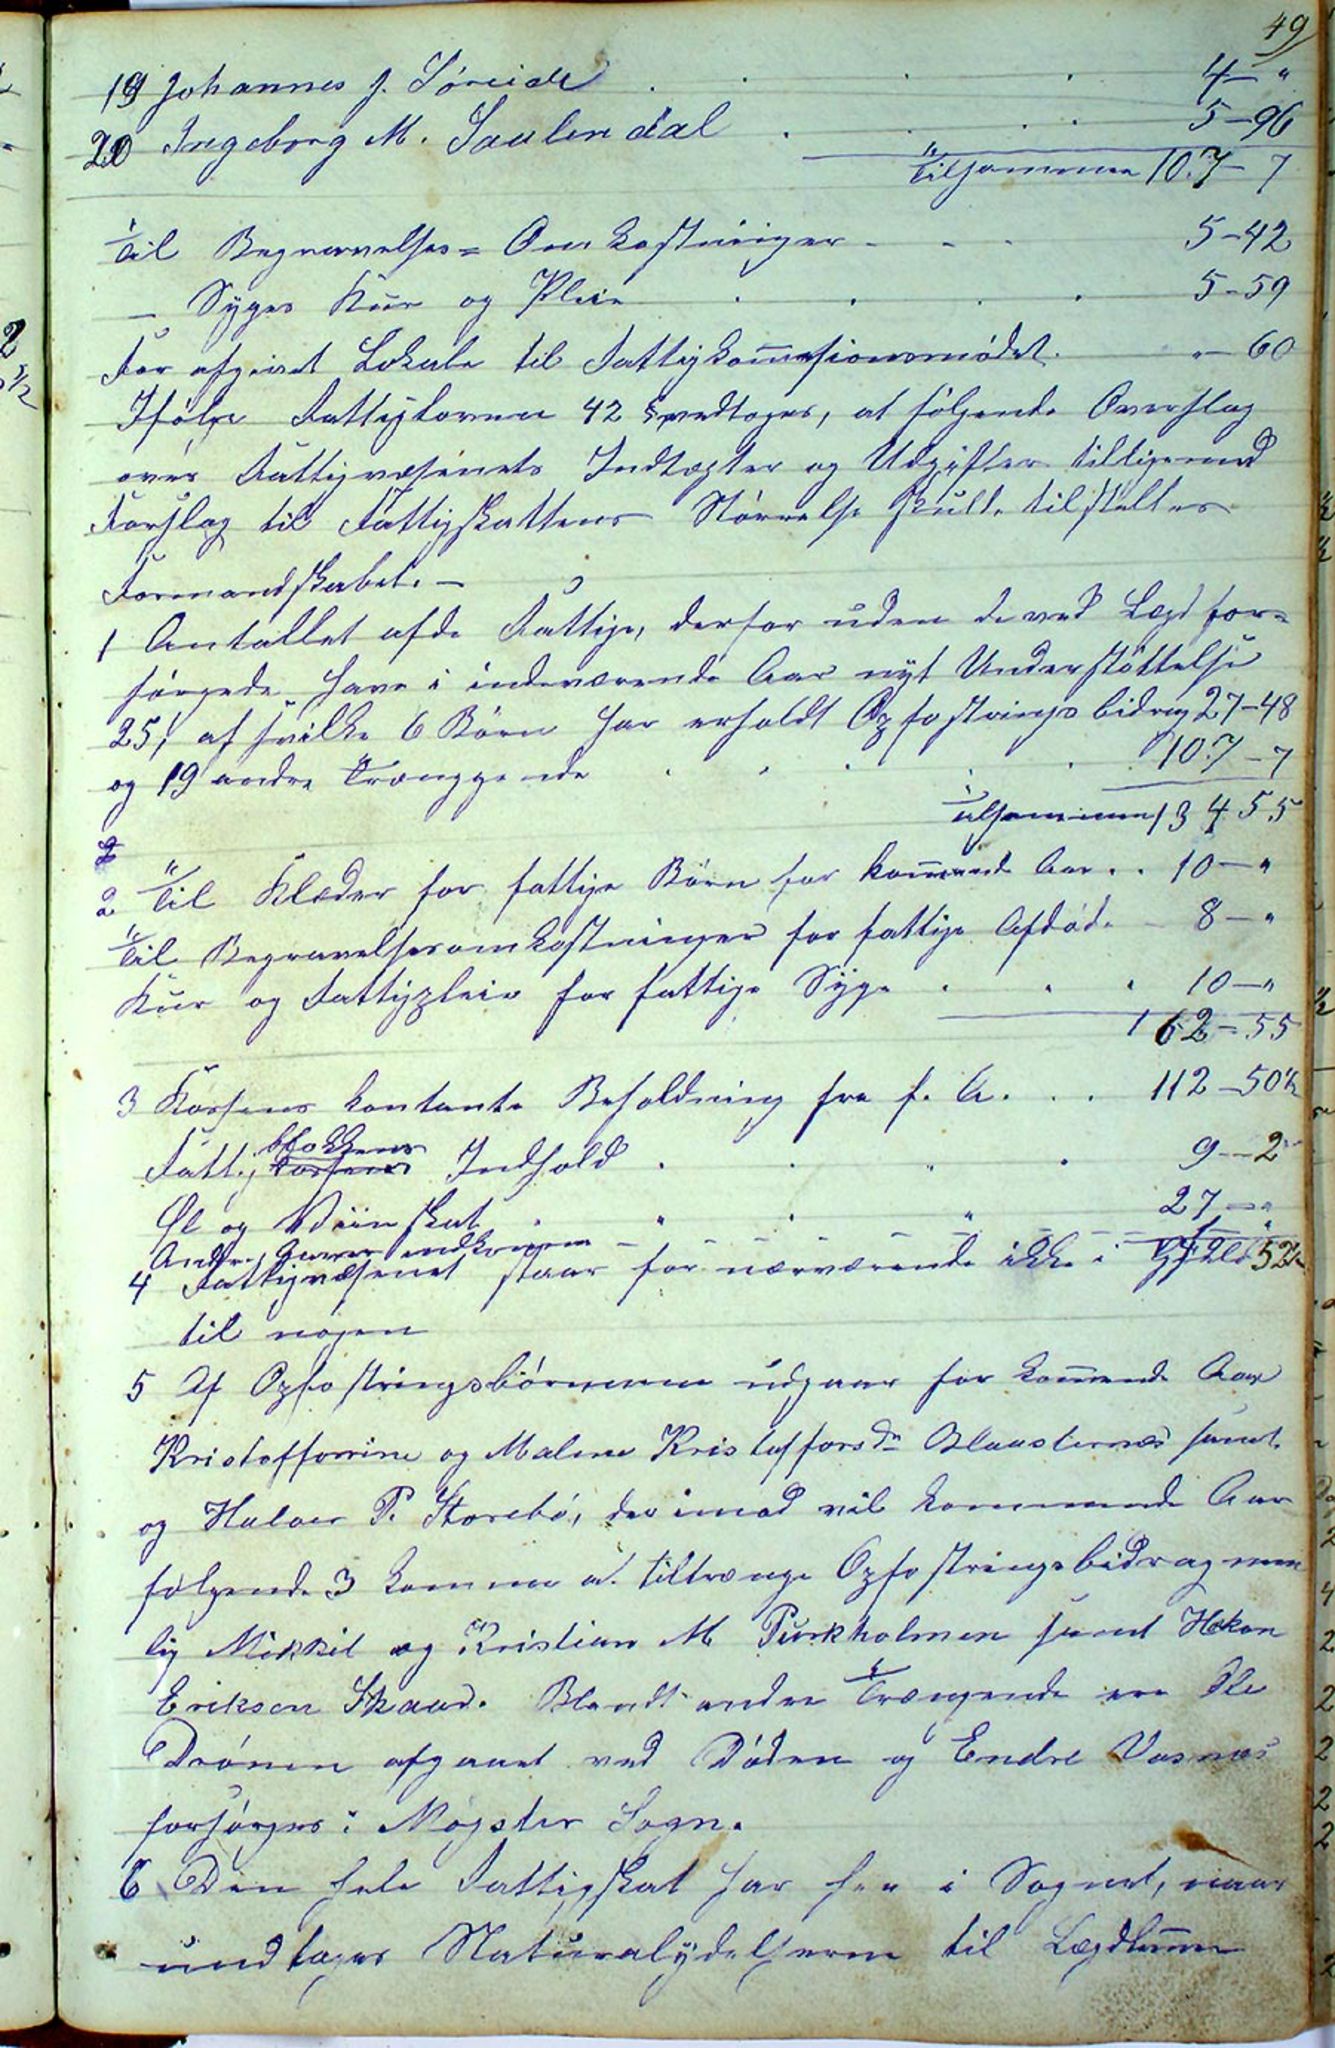 49
19 Johannes J. Søreide . . . 4 – "
20 Ingeborg M. Saulendal . . . 5 – 96
Tilsammen 107 – 7
Til Begravelses= Omkostninger - - - 5 – 42
– Syges Kur og Pleie . . . . 5 – 59
For afgivet Lokale til Fattigkom̄isionsmødet. " – 60
Ifølge Fattiglovens 42 § vedtoges, at følgende Overslag
over Fattigvæsenets Indtægter og Udgifter tilligemed
Forslag til Fattigskattens Størrelse skulde tilstelles
Formandskabet. –
1 Antallet af de Fattige, der foruden de ved Lægd for=
sørgede have i indeværende Aar nyt Understøttelse
25, af hvilke 6 Børn har erholdt Opfostringsbidrag 27 – 48
og 19 andre Trænggende . . . . 107 – 7
Tilsammen 134 55
2 Til Klæder for fattige Børn for kom̄ende Aar . . 10 – "
Til Begravelsesomkostninger for fattige Afdøde – 8 – "
Kur og Fattigpleie for fattige Syge . . . 10 – "
162 – 55
3 Kassens kontante Beholdning fra f. A. . . 112 – 50½
blokkens
Fattig Kassens Indhold . . . . 9 – 2
Øl og Viinskat . . . . 27 – "
Andre Gaver indkomne – – – – – –
4 Fattigvæsenet staar for nærværende ikke i Gjæld
til nogen
5 Af Opfostringsbørnene udgaar for kom̄ende Aar
Kristofforine og Malene Kristoffersdr Blaasternæs samt
og Halver P. Storebø, derimod vil kommende Aar
følgende 3 komme at tiltrænge Opfostringsbidrag nem
lig Mikkel og Kristian M Purkholmen samt Hakon
Eriksen Skaar. Blandt andre Trængende ere Ole
Drønen afgaaet ved Døden og Endre Vasnæs
forsørges i Møgster Sogn.
6 Den hele Fattigskat har her i Sognet, naar
undtages Naturalydelserne til Lægdlem̄er